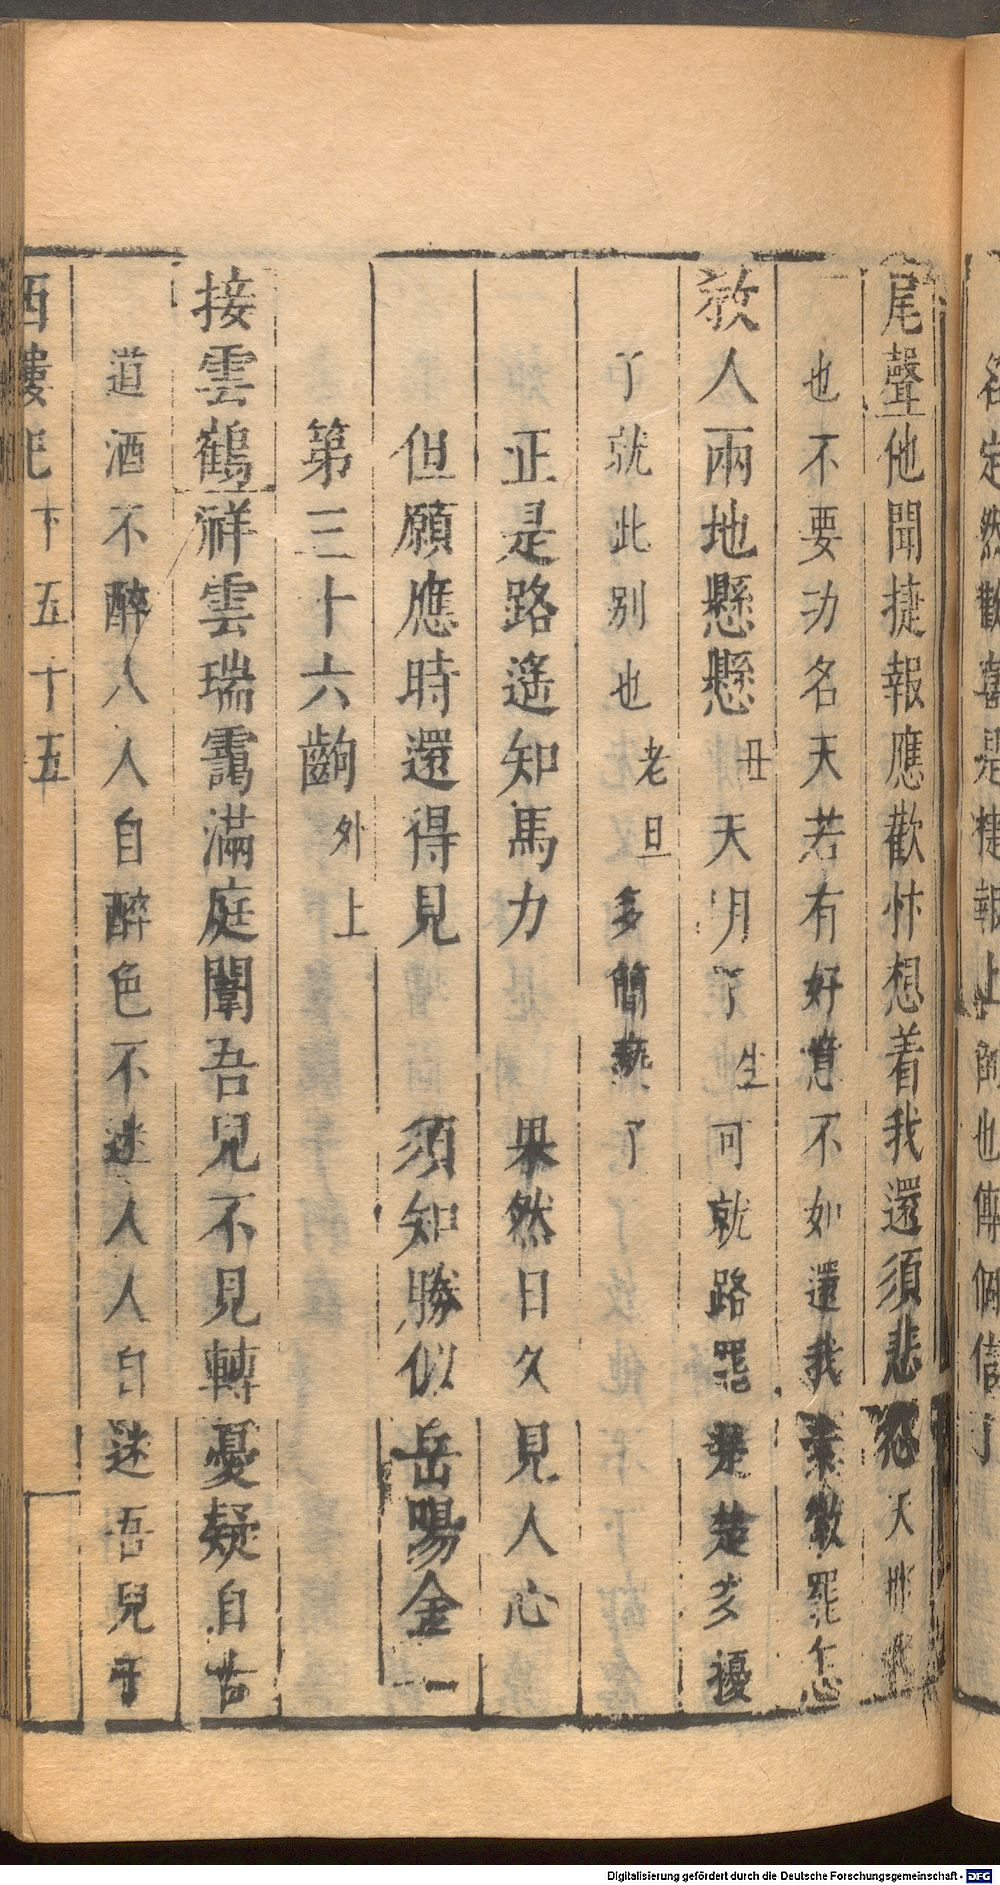 定然歡喜是捷報上面也傳個信了
尾聲他聞捷報應歡忭想着我還須悲怨天
也不要功名天若有好意不如還我業徹罷怎
教人兩地懸懸丑天明了生可就路罷是楚多擾
了就此别也老旦多簡慢了
正是路遙知馬力 果然日久見人心
但願應時還得見 須知勝似岳陽金
第三十六齣外上
接雲鶴祥雲瑞靄滿庭闈吾兒不見轉憂疑自古
道酒不醉人人自醉色不迷人人自迷吾兒于
西樓記 下 五十五
Digitalisierung gefördert durch die Deutsche Forschungsgemeinschaft - DFG